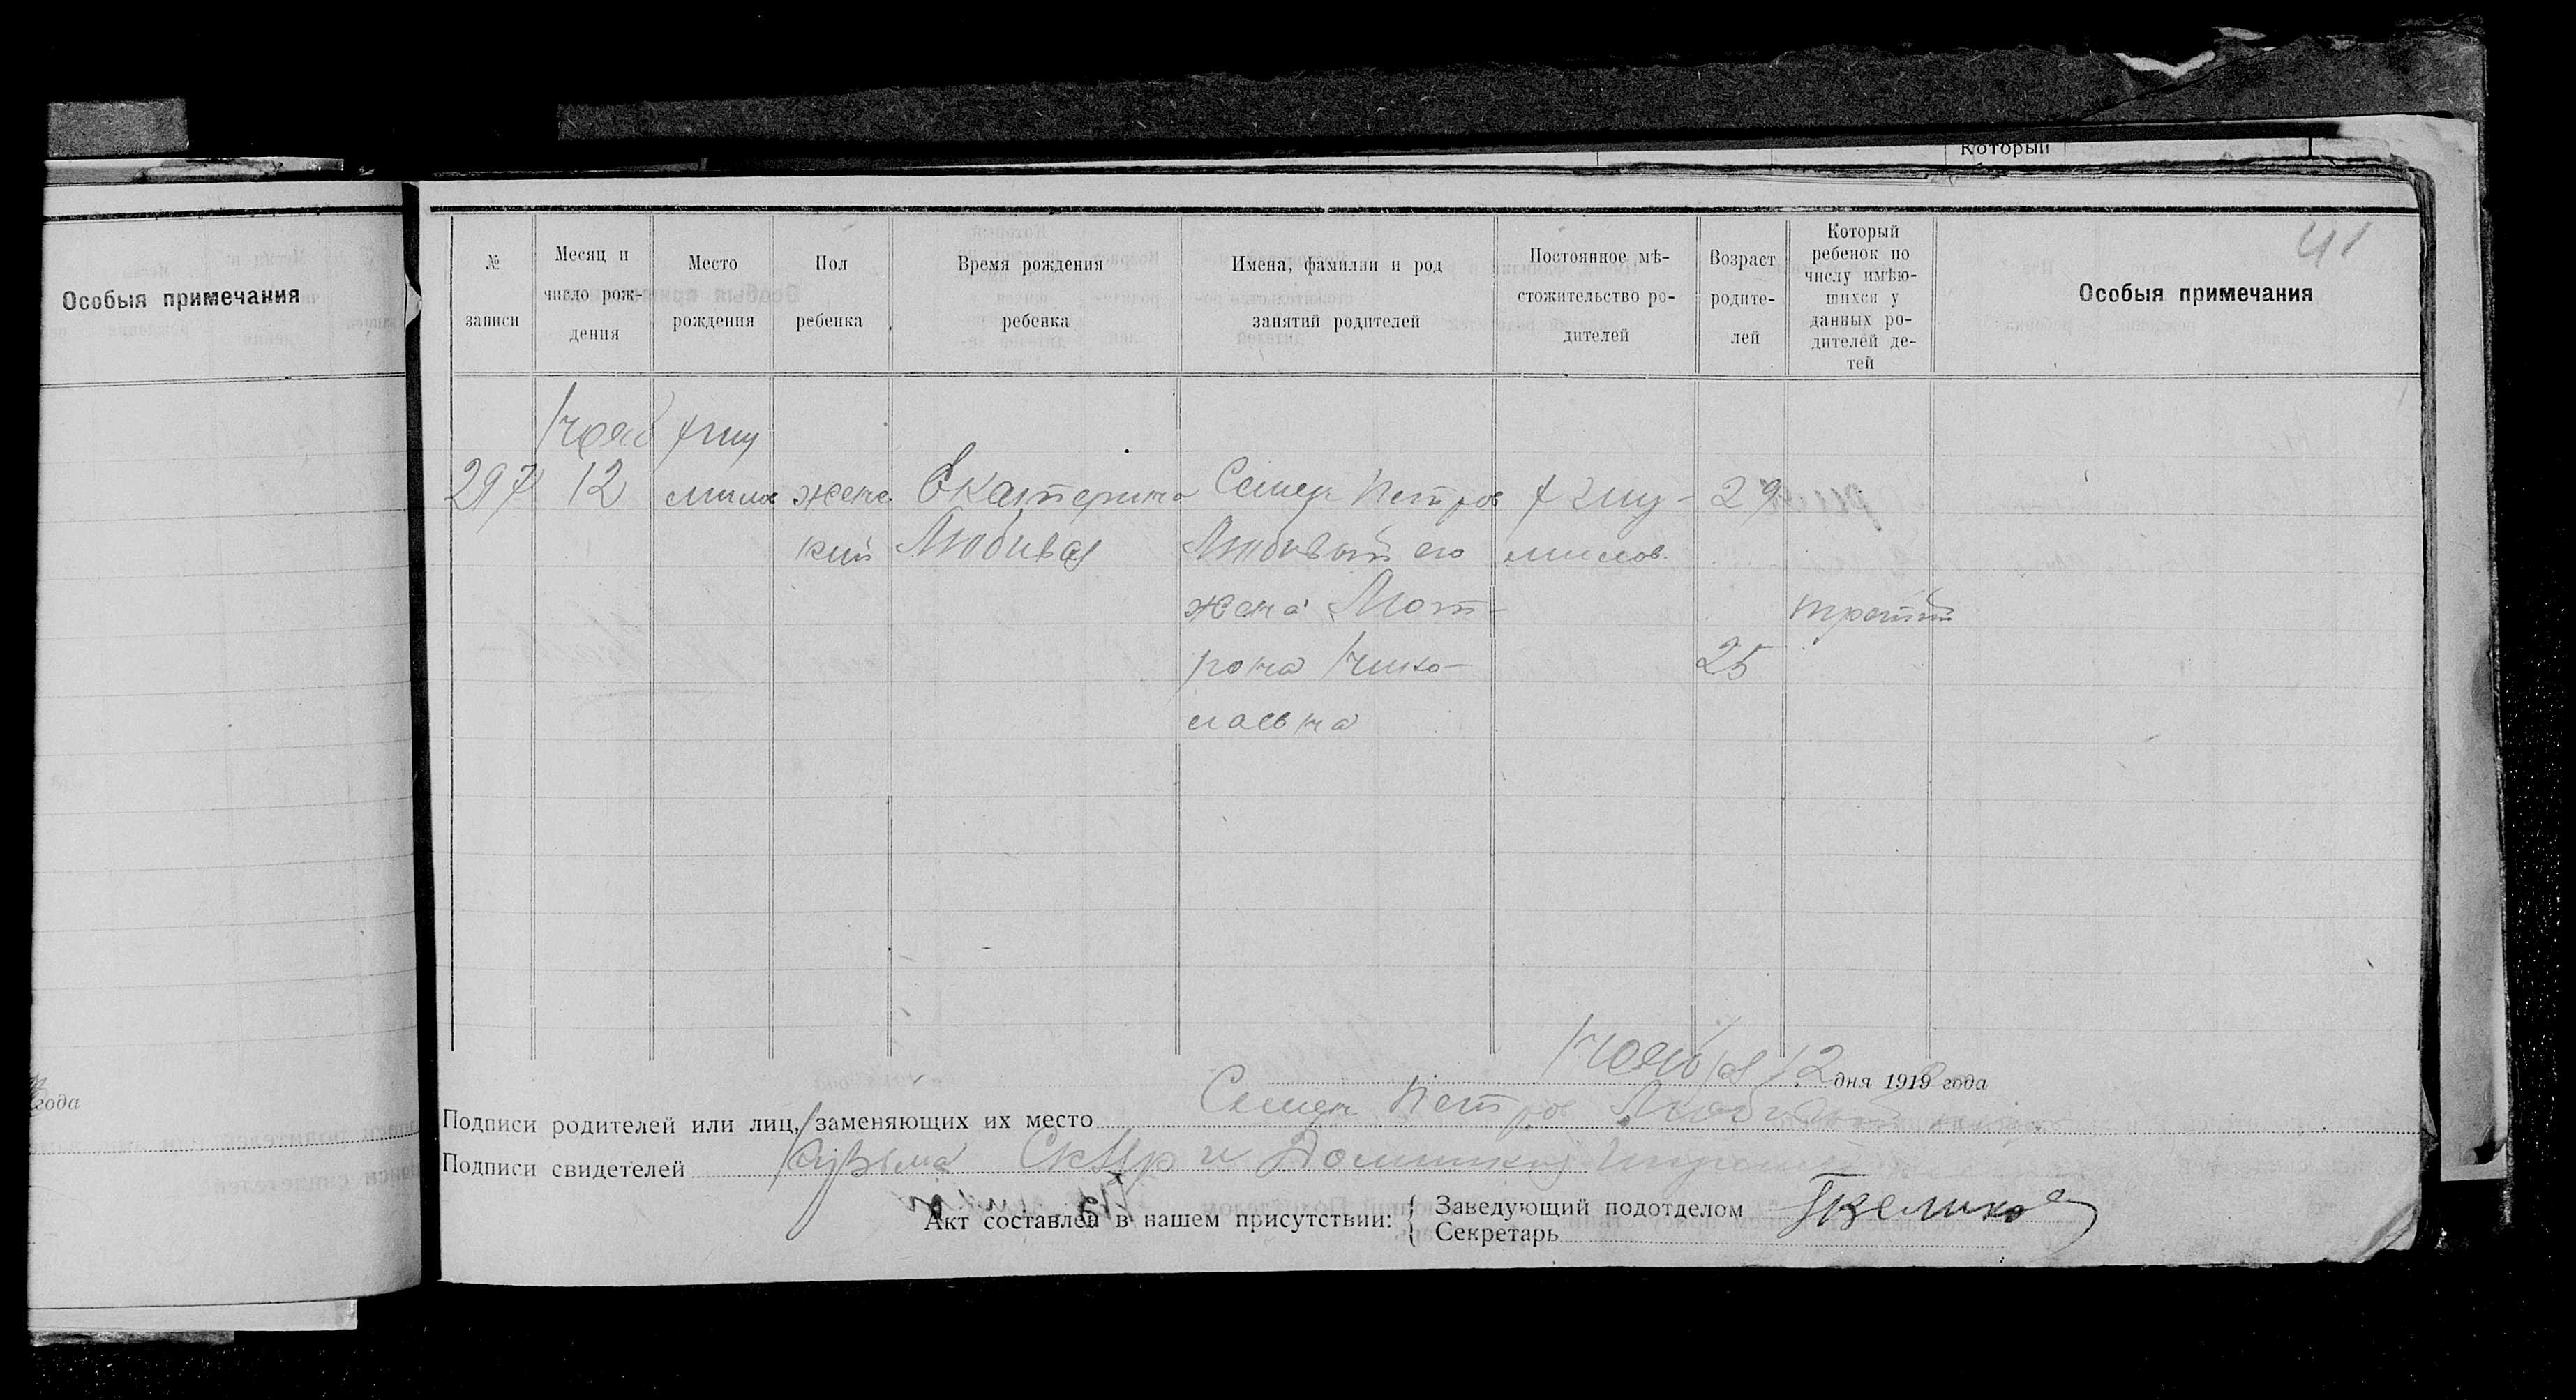 Который
Особыя примечания
года
41
№ записи
Месяц и число рождения
Место рождения
Пол ребенка
Время рождения ребенка
Имена, фамилии и род занятий родителей
Постоянное мѣстожительство родителей
Возраст родителей
Который ребенок по числу имѣющихся у данных родителей детей
Особыя примечания
Нояб
297 12 женс Екатерина Семен Петров 29
кий Любивая Любивый его
жена Мот- третий
рона Нико- 25
лаевна
Ноября 12 дня 1919 года
Подписи родителей или лиц, заменяющих их место Семен Петров Любивый
Подписи свидетелей Кузьма Скляр и
Акт составлен в нашем присутствии: { Заведующий подотделом
Секретарь